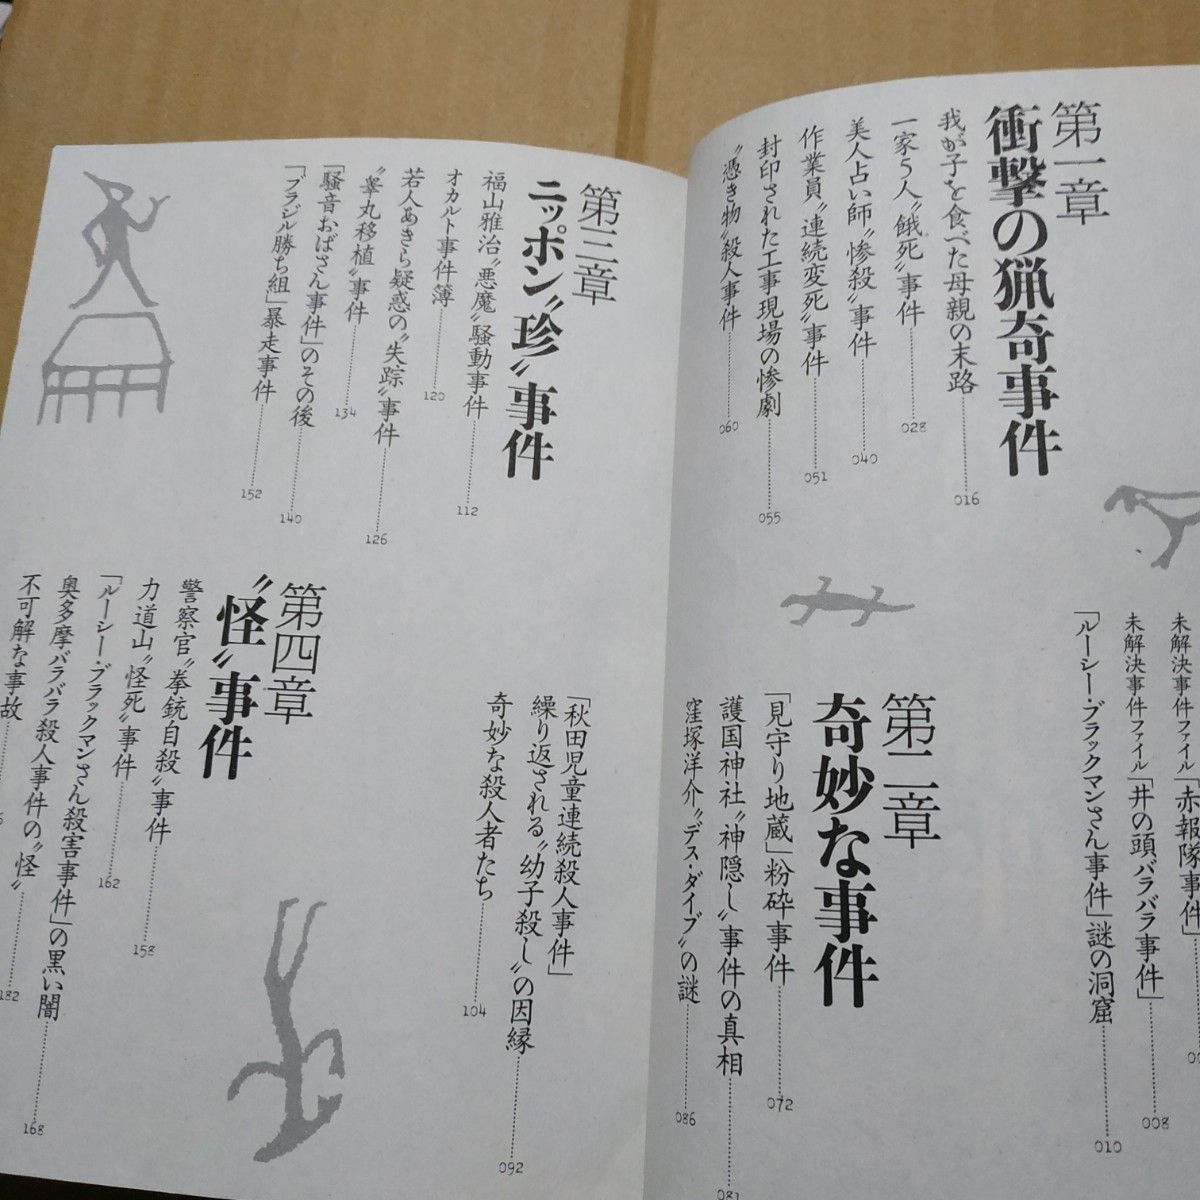 未解決事件ファイル「赤報隊事件」
未解決事件ファイル「井の頭バラバラ事件」……008
「ルーシー・ブラックマンさん事件」謎の洞窟……010
第一章
衝撃の猟奇事件
我が子を食べた母親の末路……016
一家5人〝餓死〟事件……028
美人占い師〝惨殺〟事件……040
作業員〝連続変死〟事件……051
封印された工事現場の惨劇……055
〝憑き物〟殺人事件……060
第二章
奇妙な事件
「見守り地蔵」粉砕事件……072
護国神社〝神隠し〟事件の真相……081
窪塚洋介〝デス・ダイブ〟の謎……086
「秋田児童連続殺人事件」
繰り返される〝幼子殺し〟の因縁……092
奇妙な殺人者たち……104
第三章
ニッポン〝珍〟事件
福山雅治〝悪魔〟騒動事件……112
オカルト事件簿……120
若人あきら疑惑の〝失踪〟事件……126
〝睾丸移植〟事件……134
「騒音おばさん事件」のその後……140
「ブラジル勝ち組」暴走事件……152
第四章
〝怪〟事件
警察官〝拳銃自殺〟事件……158
力道山〝怪死〟事件……162
「ルーシー・ブラックマンさん殺害事件」の黒い闇……168
奥多摩バラバラ殺人事件の〝怪〟……182
不可解な事故……